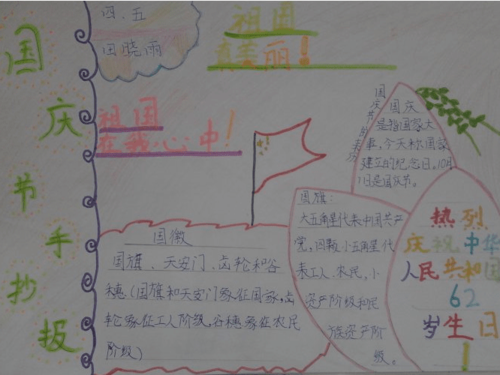 国庆节手抄报
四、五
田晓雨
祖国
真美丽！
祖国
在我心中！
国庆节的来历
国庆
是指国家大
事，今天称国家
建立的纪念日，10月
1日是国庆节。
国旗：
大五角星代表中国共产
党，四颗小五角星代
表工人、农民，小
资产阶级和民
族资产阶
级。
国徽
国旗、天安门、齿轮和谷
穗（国旗和天安门象征国家，齿
轮象征工人阶级，谷穗象征农民
阶级）
热烈
庆祝中华
人民共和国
62
岁生日
！